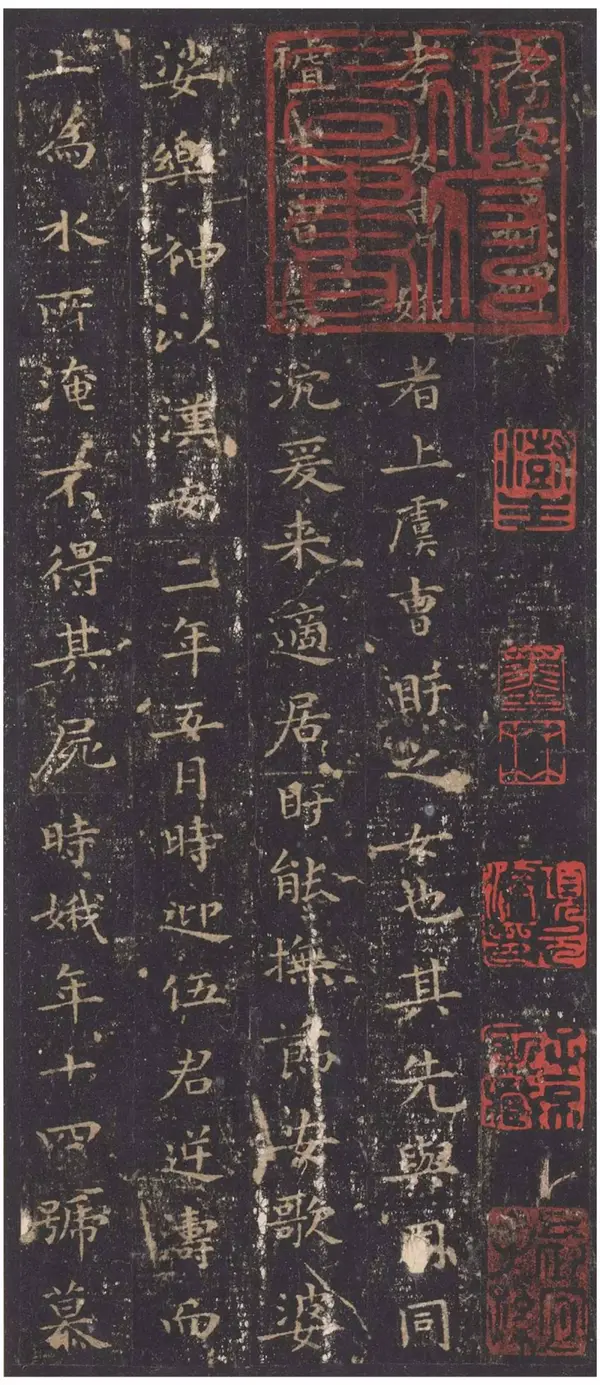 孝女曹娥碑
孝女曹娥者上虞曹盱之女也其先與周同
沉爰来適居盱能撫節安歌婆
娑樂神以漢安二年五月時迎伍君逆濤而
上為水所淹不得其屍時娥年十四號慕